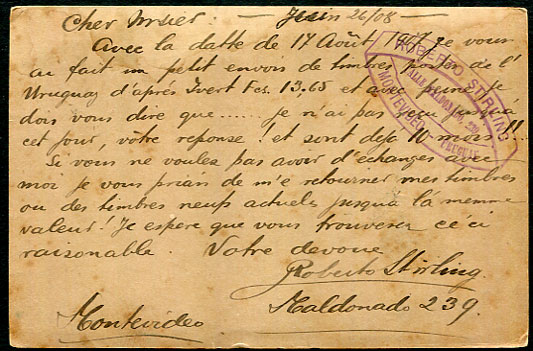 Cher Mrsier: — Juin 26/08 —
Avec la datte de 17 Août 1907 je vous
au fait un petit envois de timbres postes de l'
Uruguay d'après Ivert Fcs. 13,65 et avec peine je
dois vous dire que ..... je n'ai pas reçu jusqu'a
cet jour, vôtre reponse! et sont dejà 10 mois!!
Si vous ne voulez pas avoir d'échanges avec
moi je vous priais de m'e retourner mes timbres
ou des timbres neufs actuels jusquà la memme
valeur! Je espere que vous trouverez ce'ci
raisonable. Votre devoue
Roberto Stirling
Maldonado 239.
Montevideo
ROBERTO STIRLING
CALLE MALDONADO 239
MONTEVIDEO